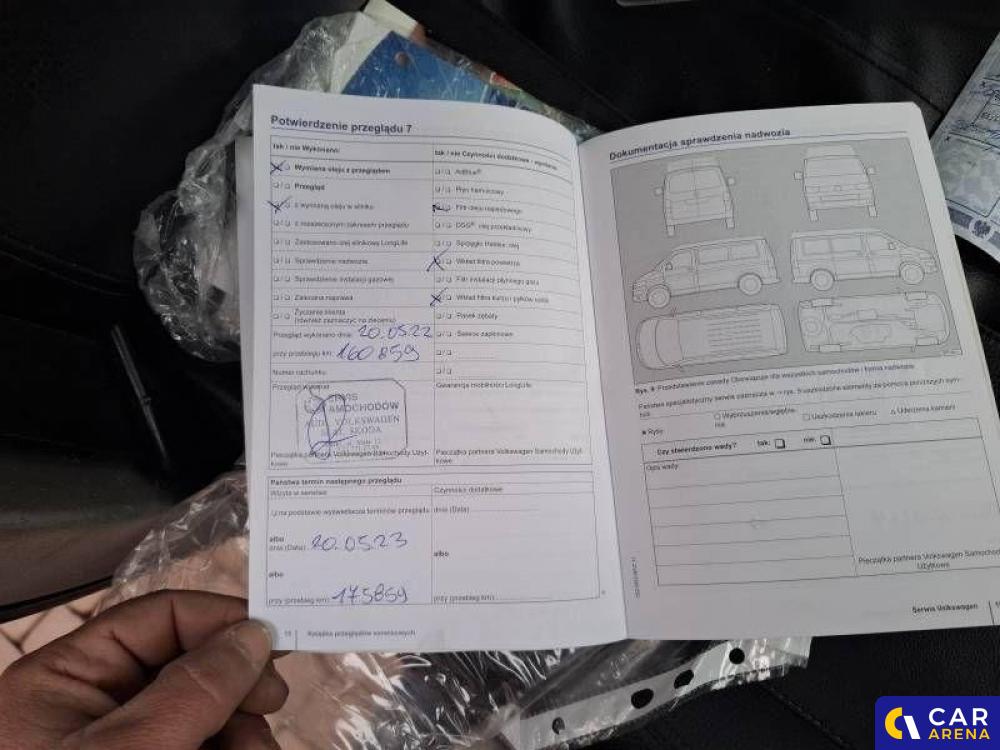 Potwierdzenie przeglądu 7
tak / nie Wykonano:
Wymiana oleju z przeglądem
Przegląd
z wymianą oleju w silniku
z rozszerzonym zakresem przeglądu
Zastosowano olej silnikowy LongLife
Sprawdzenie nadwozia
Sprawdzenie instalacji gazowej
Zalecana naprawa
Życzenie klienta
(również zaznaczyć na zleceniu)
Przegląd wykonano dnia: 20.05.22
przy przebiegu km: 160859
Numer rachunku:
Przegląd wykonał
SERWIS
SAMOCHODÓW
AUDI, VOLKSWAGEN
SEAT, SKODA
Pieczątka partnera Volkswagen Samochody Użyt-
kowe
tak / nie Czynności dodatkowe - wymiana
AdBlue®
Płyn hamulcowy
Filtr oleju napędowego
DSG®: olej przekładniowy
Sprzęgło Haldex: olej
Wkład filtra powietrza
Filtr instalacji płynnego gazu
Wkład filtra kurzu i pyłków roślin
Pasek zębaty
Świece zapłonowe
Gwarancja mobilności LongLife
Pieczątka partnera Volkswagen Samochody Użyt-
kowe
Państwa termin następnego przeglądu
Wizyta w serwisie
na podstawie wyświetlacza terminów przeglądu
albo
dnia (Data): 20.05.23
albo
przy (przebieg km): 175859
Czynności dodatkowe
dnia (Data):
albo
przy (przebieg km):
Książka przeglądów serwisowych
Dokumentacja sprawdzenia nadwozia
Rys. 9 Przedstawienie zasady. Obowiązuje dla wszystkich samochodów i form nadwozia
Rysy
Wybrzuszenia/wgłębie-
nia
Uszkodzenia lakieru
Uderzenia kamieni
Czy stwierdzono wady? tak: nie:
Opis wady:
Pieczątka partnera Volkswagen Samochody
Użytkowe
Serwis Volkswagen
CAR
ARENA